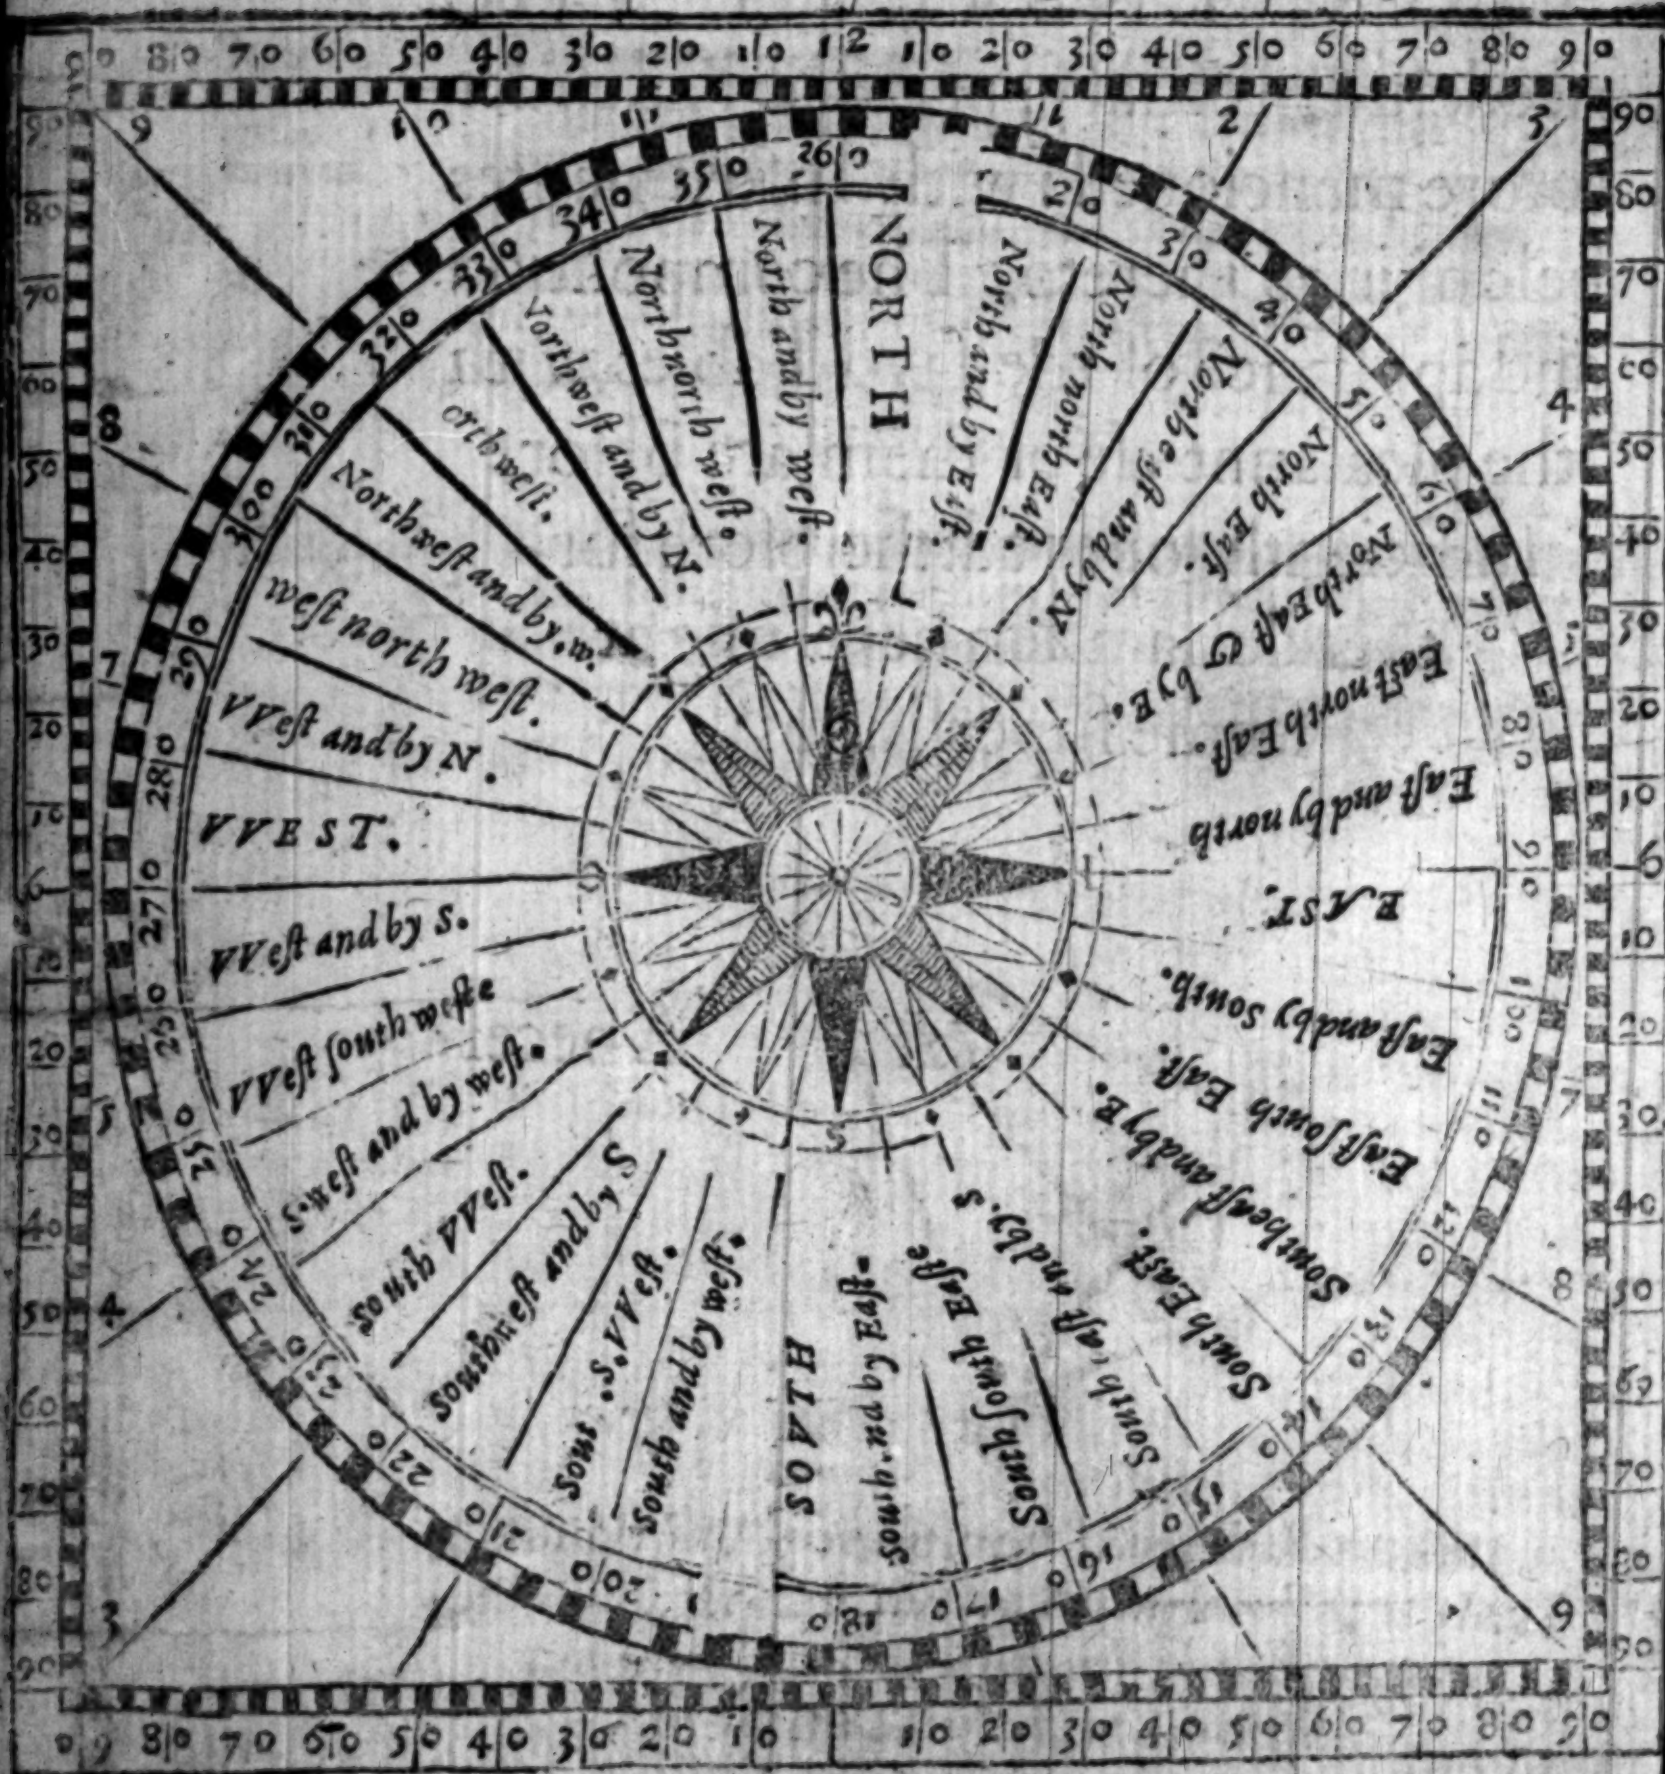 90 80 70 60 50 40 30 20 10 12 10 20 30 40 50 60 70 80 90
9 10 11 1 2 3
90 80 70 60 50 40 30 20 10 6 10 20 30 40 50 60 70 80 90
8 7 5 4 3
26|0 20 30 40 50 60 70 80 90 100 110 120 130 140 150 160 170 180 200 210 220 230 240 250 260 270 280 290 300 310 320 330 340 350
NORTH
North and by Eaſt.
North north Eaſt.
Northeaſt and by N.
North Eaſt.
North Eaſt & by E.
Eaſt north Eaſt.
Eaſt and by north
EAST.
Eaſt and by South.
Eaſt ſouth Eaſt.
Southeaſt and by E.
South Eaſt.
Southeaſt and by. S
South ſouth Eaſte
South and by Eaſt.
SOVTH
South and by weſt.
Sout .S.VVeſt.
Southweſt and by S
South VVeſt.
S.weſt and by weſt.
VVeſt ſouth weſte
VVeſt and by S.
VVEST.
VVeſt and by N.
weſt north weſt.
Northweſt and by.w.
orth weſt.
Northweſt and by N.
Northnorth weſt.
North and by weſt.
S
4 8 9
90 80 70 60 50 40 30 20 10 6 10 20 30 40 50 60 70 80 90
90 80 70 60 50 40 30 20 10 10 20 30 40 50 60 70 80 90